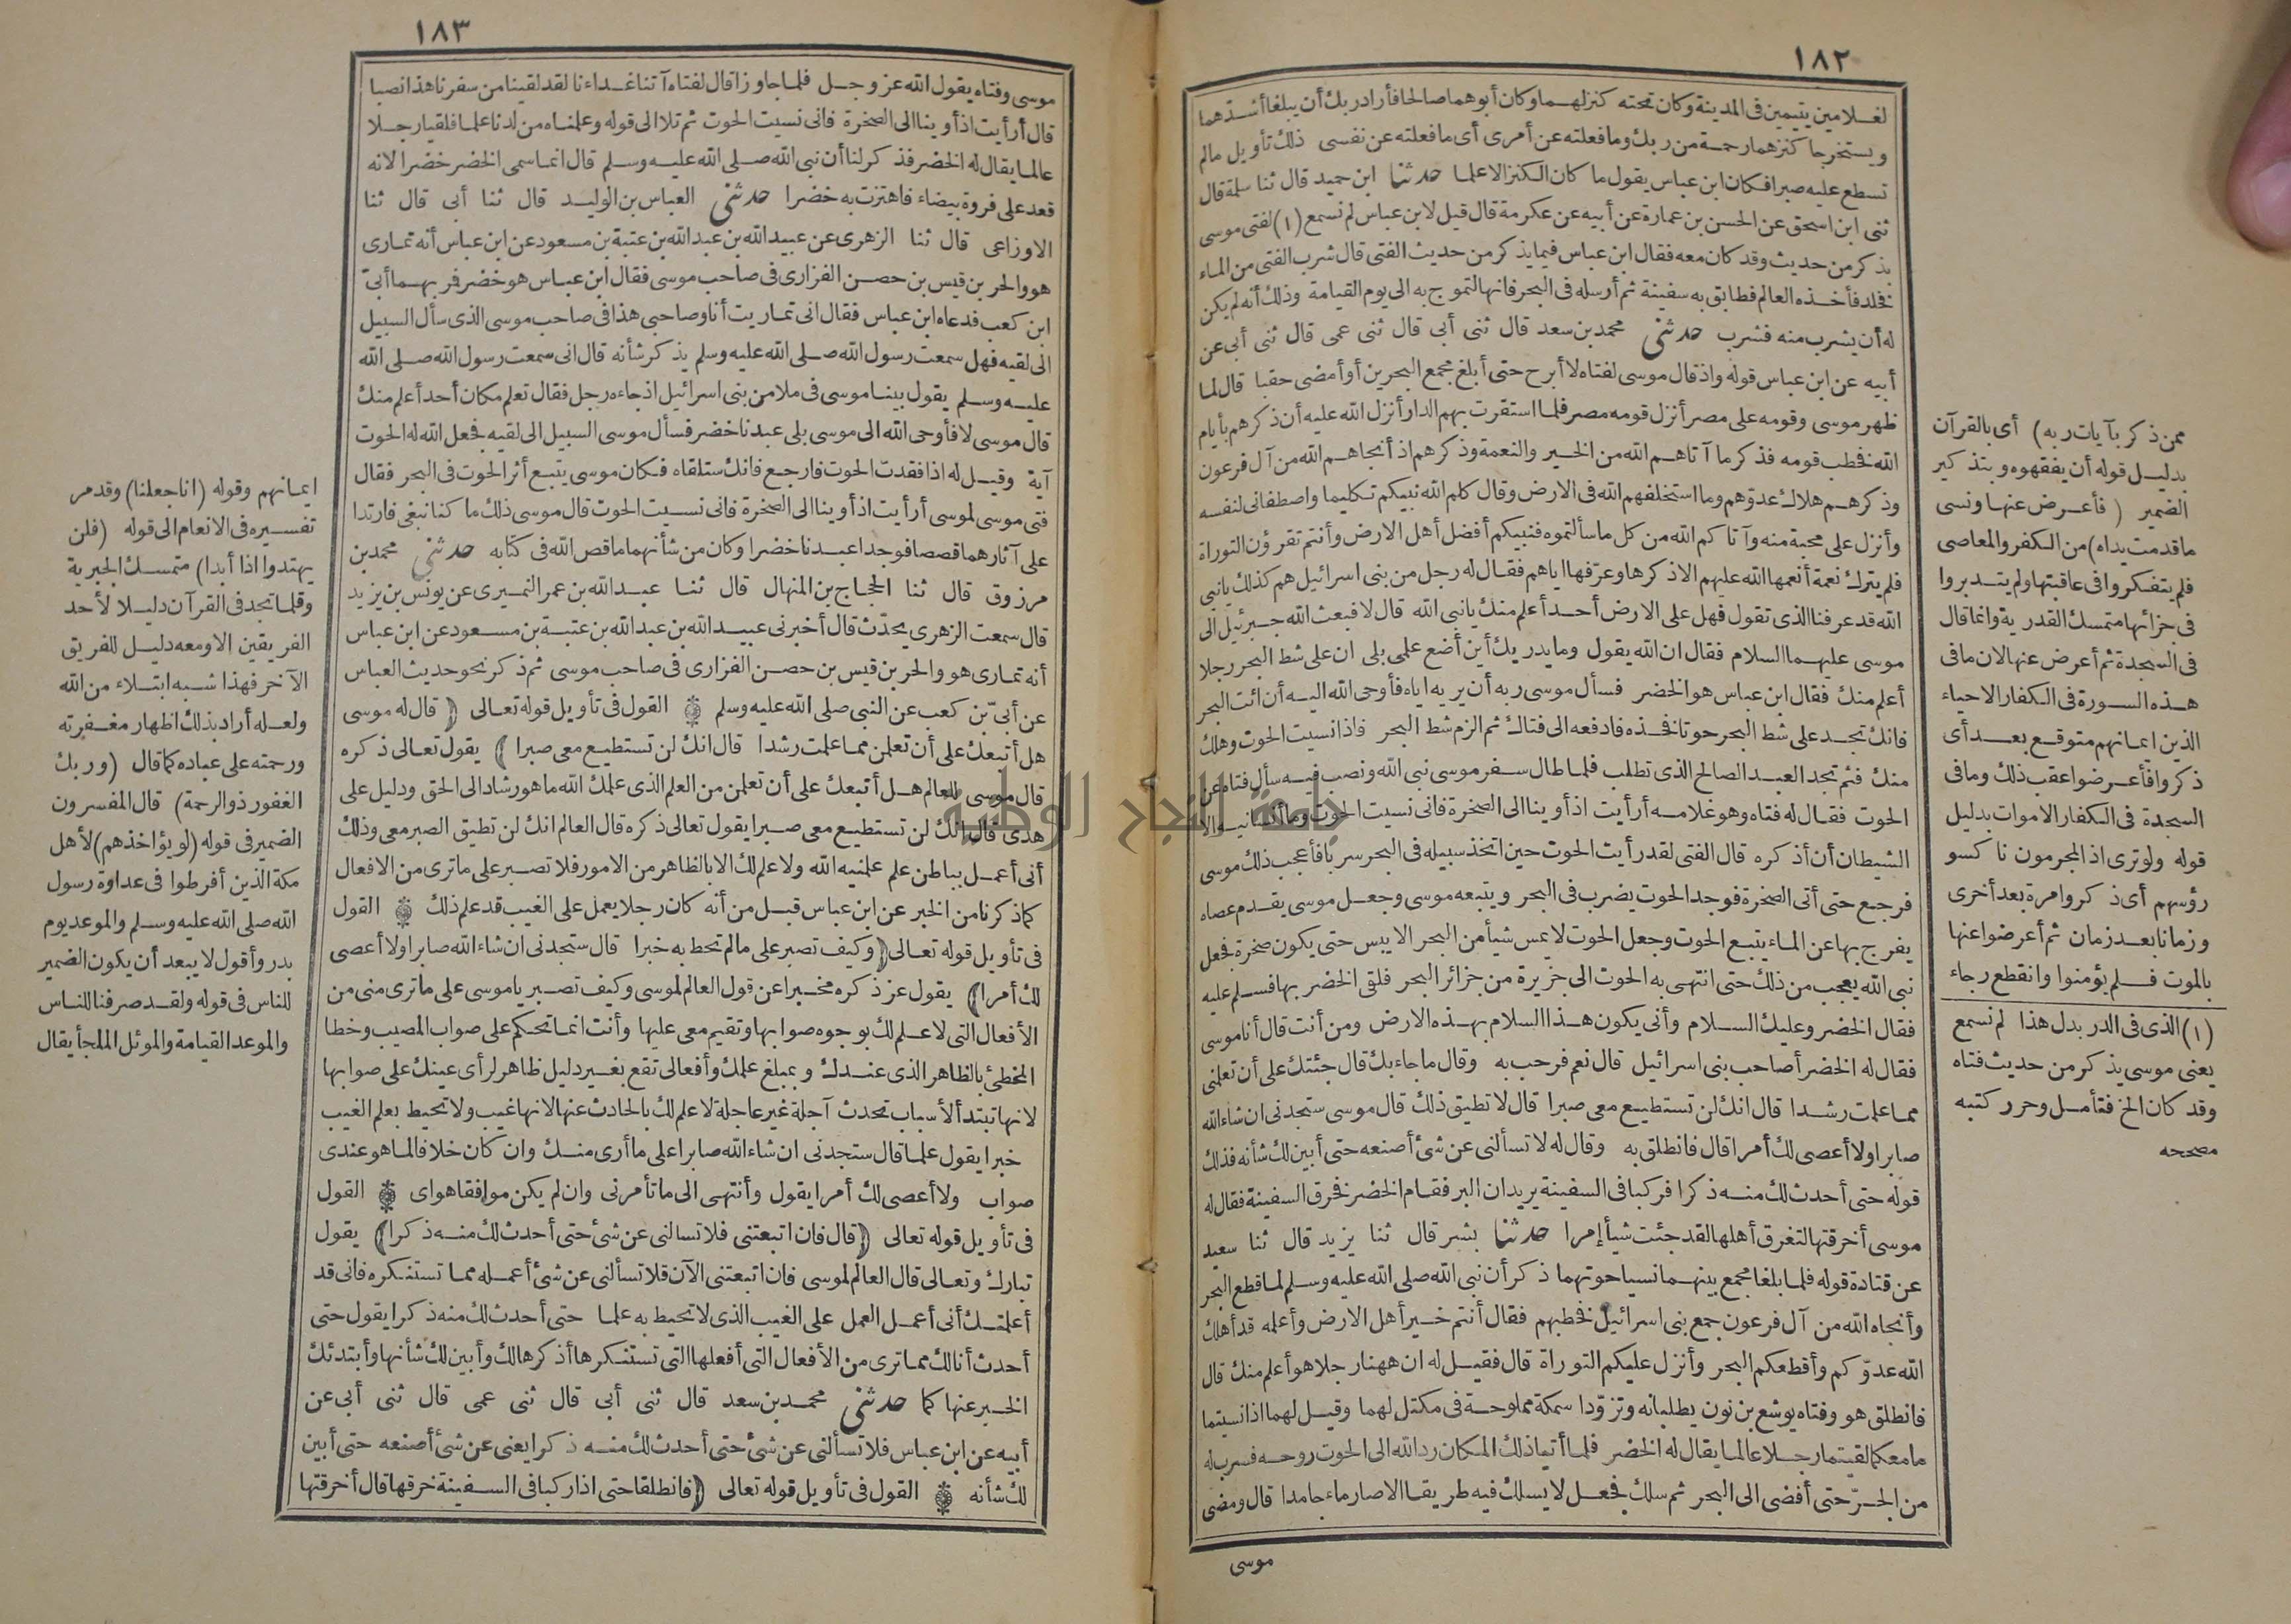 ١٨٢
لغلامين يتيمين فى المدينة وكان تحته كنز لهما وكان أبوهما صالحا فأراد ربك أن يبلغا أشدهما
ويستخرجا كنزهما رحمة من ربك وما فعلته عن أمرى أى ما فعلته عن نفسى ذلك تأويل مالم
تسطع عليه صبرا فكان ابن عباس يقول ما كان الكنز الا علما حدثنا ابن حميد قال ثنا سلمة قال
ثنى ابن اسحق عن الحسن بن عمارة عن أبيه عن عكرمة قال قيل لابن عباس لم نسمع (١) لفتى موسى
يذكر من حديث وقد كان معه فقال ابن عباس فيما يذكر من حديث الفتى قال شرب الفتى من الماء
فخلد فأخذه العالم فطابق به سفينة ثم أرسله فى البحر فانها لتموج به الى يوم القيامة وذلك أنه لم يكن
له أن يشرب منه فشرب حدثنى محمد بن سعد قال ثنى أبى قال ثنى عمى قال ثنى أبى عن
أبيه عن ابن عباس قوله واذ قال موسى لفتاه لا أبرح حتى أبلغ مجمع البحرين أو أمضى حقبا قال لما
ظهر موسى وقومه على مصر أنزل قومه مصر فلما استقرت بهم الدار أنزل الله عليه أن ذكرهم بأيام
الله فخطب قومه فذكر ما آتاهم الله من الخير والنعمة وذكرهم اذ أنجاهم الله من آل فرعون
وذكرهم هلاك عدوّهم وما استخلفهم الله فى الارض وقال كلم الله نبيكم تكليما واصطفانى لنفسه
وأنزل على محبة منه وآتاكم الله من كل ما سألتموه فنبيكم أفضل أهل الارض وأنتم تقرؤن التوراة
فلم يترك نعمة أنعمها الله عليهم الا ذكرها وعرّفها اياهم فقال له رجل من بنى اسرائيل هم كذلك يانبى
الله قد عرفنا الذى تقول فهل على الارض أحد أعلم منك يانبى الله قال لا فبعث الله جبرئيل الى
موسى عليهما السلام فقال ان الله يقول وما يدريك أين أضع علمى بلى ان على شط البحر رجلا
أعلم منك فقال ابن عباس هو الخضر فسأل موسى ربه أن يريه اياه فأوحى الله اليه أن ائت البحر
فانك تجد على شط البحر حوتا فخذه فادفعه الى فتاك ثم الزم شط البحر فاذا نسيت الحوت وهلك
منك فثم تجد العبد الصالح الذى تطلب فلما طال سفر موسى نبى الله ونصب فيه سأل فتاه عن
الحوت فقال له فتاه وهو غلامه أرأيت اذ أوينا الى الصخرة فانى نسيت الحوت وما أنسانيه الا
الشيطان أن أذكره قال الفتى لقد رأيت الحوت حين اتخذ سبيله فى البحر سربا فأعجب ذلك موسى
فرجع حتى أتى الصخرة فوجد الحوت يضرب فى البحر ويتبعه موسى وجعل موسى يقدم عصاه
يفرج بها عن الماء يتبع الحوت وجعل الحوت لا يمس شيأ من البحر الا يبس حتى يكون صخرة فجعل
نبى الله يعجب من ذلك حتى انتهى به الحوت الى جزيرة من جزائر البحر فلقى الخضر بها فسلم عليه
فقال الخضر وعليك السلام وأنى يكون هذا السلام بهذه الارض ومن أنت قال أنا موسى
فقال له الخضر أصاحب بنى اسرائيل قال نعم فرحب به وقال ما جاء بك قال جئتك على أن تعلمنى
مما علمت رشدا قال انك لن تستطيع معى صبرا قال لا تطيق ذلك قال موسى ستجدنى ان شاء الله
صابرا ولا أعصى لك أمرا قال فانطلق به وقال له لا تسألنى عن شئ أصنعه حتى أبين لك شأنه فذلك
قوله حتى أحدث لك منه ذكرا فركبا فى السفينة يريدان البر فقام الخضر فخرق السفينة فقال له
موسى أخرقتها لتغرق أهلها لقد جئت شيأ إمرا حدثنا بشر قال ثنا يزيد قال ثنا سعيد
عن قتادة قوله فلما بلغا مجمع بينهما نسيا حوتهما ذكر أن نبى الله صلى الله عليه وسلم لما قطع البحر
وأنجاه الله من آل فرعون جمع بنى اسرائيل فخطبهم فقال أنتم خير أهل الارض وأعلمه قد أهلك
الله عدوّكم وأقطعكم البحر وأنزل عليكم التوراة قال فقيل له ان ههنا رجلا هو أعلم منك قال
فانطلق هو وفتاه يوشع بن نون يطلبانه وتزوّدا سمكة مملوحة فى مكتل لهما وقيل لهما اذا نسيتما
ما معكما لقيتما رجلا عالما يقال له الخضر فلما أتيا ذلك المكان رد الله الى الحوت روحه فسرب له
من الجدّ حتى أفضى الى البحر ثم سلك فجعل لا يسلك فيه طريقا الا صار ماء جامدا قال ومضى
موسى
ممن ذكر بآيات ربه) أى بالقرآن
بدليل قوله أن يفقهوه وبتذكير
الضمير (فأعرض عنها ونسى
ما قدمت يداه) من الكفر والمعاصى
فلم يتفكروا فى عاقبتها ولم يتدبروا
فى جزائها متمسك القدرية وانما قال
فى السجدة ثم أعرض عنها لان ما فى
هذه السورة فى الكفار الاحياء
الذين ايمانهم متوقع بعد أى
ذكروا فأعرضوا عقب ذلك وما فى
السجدة فى الكفار الاموات بدليل
قوله ولو ترى اذ المجرمون ناكسو
رؤسهم أى ذكروا مرة بعد أخرى
وزمانا بعد زمان ثم أعرضوا عنها
بالموت فلم يؤمنوا وانقطع رجاء
(١) الذى فى الدر بدل هذا لم نسمع
يعنى موسى يذكر من حديث فتاه
وقد كان الخ فتأمل وحرر كتبه
مصححه
١٨٣
موسى وفتاه يقول الله عز وجل فلما جاوزا قال لفتاه آتنا غداءنا لقد لقينا من سفرنا هذا نصبا
قال أرأيت اذ أوينا الى الصخرة فانى نسيت الحوت ثم تلا الى قوله وعلمناه من لدنا علما فلقيا رجلا
عالما يقال له الخضر فذكر لنا أن نبى الله صلى الله عليه وسلم قال انما سمى الخضر خضرا لانه
قعد على فروة بيضاء فاهتزت به خضرا حدثنى العباس بن الوليد قال ثنا أبى قال ثنا
الاوزاعى قال ثنا الزهرى عن عبيد الله بن عبد الله بن عتبة بن مسعود عن ابن عباس أنه تمارى
هو والحر بن قيس بن حصن الفزارى فى صاحب موسى فقال ابن عباس هو خضر فمر بهما أبىّ
ابن كعب فدعاه ابن عباس فقال انى تماريت أنا وصاحبى هذا فى صاحب موسى الذى سأل السبيل
الى لقيه فهل سمعت رسول الله صلى الله عليه وسلم يذكر شأنه قال انى سمعت رسول الله صلى الله
عليه وسلم يقول بينا موسى فى ملا من بنى اسرائيل اذ جاءه رجل فقال تعلم مكان أحد أعلم منك
قال موسى لا فأوحى الله الى موسى بلى عبدنا خضر فسأل موسى السبيل الى لقيه فجعل الله له الحوت
آية وقيل له اذا فقدت الحوت فارجع فانك ستلقاه فكان موسى يتبع أثر الحوت فى البحر فقال
فتى موسى لموسى أرأيت اذ أوينا الى الصخرة فانى نسيت الحوت قال موسى ذلك ما كنا نبغى فارتدا
على آثارهما قصصا فوجدا عبدنا خضرا وكان من شأنهما ما قص الله فى كتابه حدثنى محمد بن
مرزوق قال ثنا الحجاج بن المنهال قال ثنا عبد الله بن عمر النميرى عن يونس بن يزيد
قال سمعت الزهرى يحدّث قال أخبرنى عبيد الله بن عبد الله بن عتبة بن مسعود عن ابن عباس
أنه تمارى هو والحر بن قيس بن حصن الفزارى فى صاحب موسى ثم ذكر نحو حديث العباس
عن أبىّ بن كعب عن النبى صلى الله عليه وسلم القول فى تأويل قوله تعالى (قال له موسى
هل أتبعك على أن تعلمن مما علمت رشدا قال انك لن تستطيع معى صبرا) يقول تعالى ذكره
قال موسى للعالم هل أتبعك على أن تعلمن من العلم الذى علمك الله ما هو رشاد الى الحق ودليل على
هدى قال انك لن تستطيع معى صبرا يقول تعالى ذكره قال العالم انك لن تطيق الصبر معى وذلك
أنى أعمل بباطن علم علمنيه الله ولا علم لك الا بالظاهر من الامور فلا تصبر على ما ترى من الافعال
كما ذكرنا من الخبر عن ابن عباس قبل من أنه كان رجلا يعمل على الغيب قد علم ذلك القول
فى تأويل قوله تعالى (وكيف تصبر على مالم تحط به خبرا قال ستجدنى ان شاء الله صابرا ولا أعصى
لك أمرا) يقول عز ذكره مخبرا عن قول العالم لموسى وكيف تصبر ياموسى على ما ترى منى من
الأفعال التى لا علم لك بوجوه صوابها وتقيم معى عليها وأنت انما تحكم على صواب المصيب وخطا
المخطئ بالظاهر الذى عندك وبمبلغ علمك وأفعالى تقع بغير دليل ظاهر لرأى عينك على صوابها
لانها تبتدأ لأسباب تحدث آجلة غير عاجلة لا علم لك بالحادث عنها لانها غيب ولا تحيط بعلم الغيب
خبرا يقول علما قال ستجدنى ان شاء الله صابرا على ما أرى منك وان كان خلافا لما هو عندى
صواب ولا أعصى لك أمرا يقول وأنتهى الى ما تأمرنى وان لم يكن موافقا هواى القول
فى تأويل قوله تعالى (قال فان اتبعتنى فلا تسألنى عن شئ حتى أحدث لك منه ذكرا) يقول
تبارك وتعالى قال العالم لموسى فان اتبعتنى الآن فلا تسألنى عن شئ أعمله مما تستنكره فانى قد
أعلمتك أنى أعمل العمل على الغيب الذى لا تحيط به علما حتى أحدث لك منه ذكرا يقول حتى
أحدث أنا لك مما ترى من الأفعال التى أفعلها التى تستنكرها أذكرها لك وأبين لك شأنها وأبتدئك
الخبر عنها كما حدثنى محمد بن سعد قال ثنى أبى قال ثنى عمى قال ثنى أبى عن
أبيه عن ابن عباس فلا تسألنى عن شئ حتى أحدث لك منه ذكرا يعنى عن شئ أصنعه حتى أبين
لك شأنه القول فى تأويل قوله تعالى (فانطلقا حتى اذا ركبا فى السفينة خرقها قال أخرقتها
ايمانهم وقوله (انا جعلنا) وقد مر
تفسيره فى الانعام الى قوله (فلن
يهتدوا اذا أبدا) متمسك الجبرية
وقلما تجد فى القرآن دليلا لأحد
الفريقين الا ومعه دليل للفريق
الآخر فهذا شبه ابتلاء من الله
ولعله أراد بذلك اظهار مغفرته
ورحمته على عباده كما قال (وربك
الغفور ذو الرحمة) قال المفسرون
الضمير فى قوله (لو يؤاخذهم) لأهل
مكة الذين أفرطوا فى عداوة رسول
الله صلى الله عليه وسلم والموعد يوم
بدر وأقول لا يبعد أن يكون الضمير
للناس فى قوله ولقد صرفنا للناس
والموعد القيامة والموئل الملجأ يقال
جامعة النجاح الوطنية